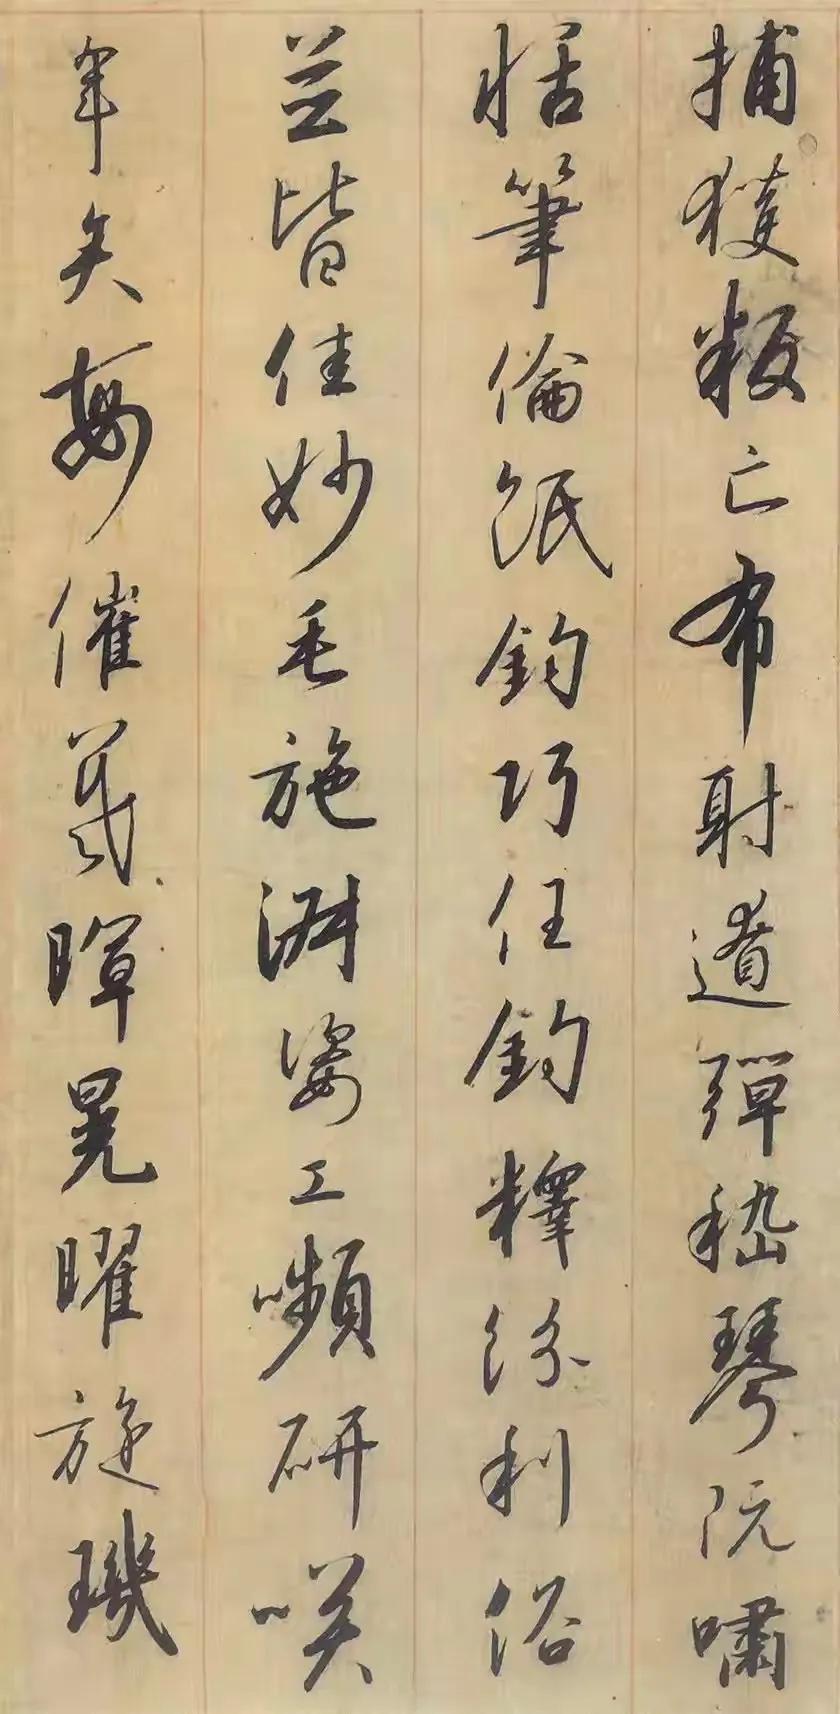 捕獲叛亡布射遼彈嵇琴阮嘯
恬筆倫紙鈞巧任鈞釋紛利俗
並皆佳妙毛施淑姿工嚬研咲
年矢每催羲暉晃曜旋璣